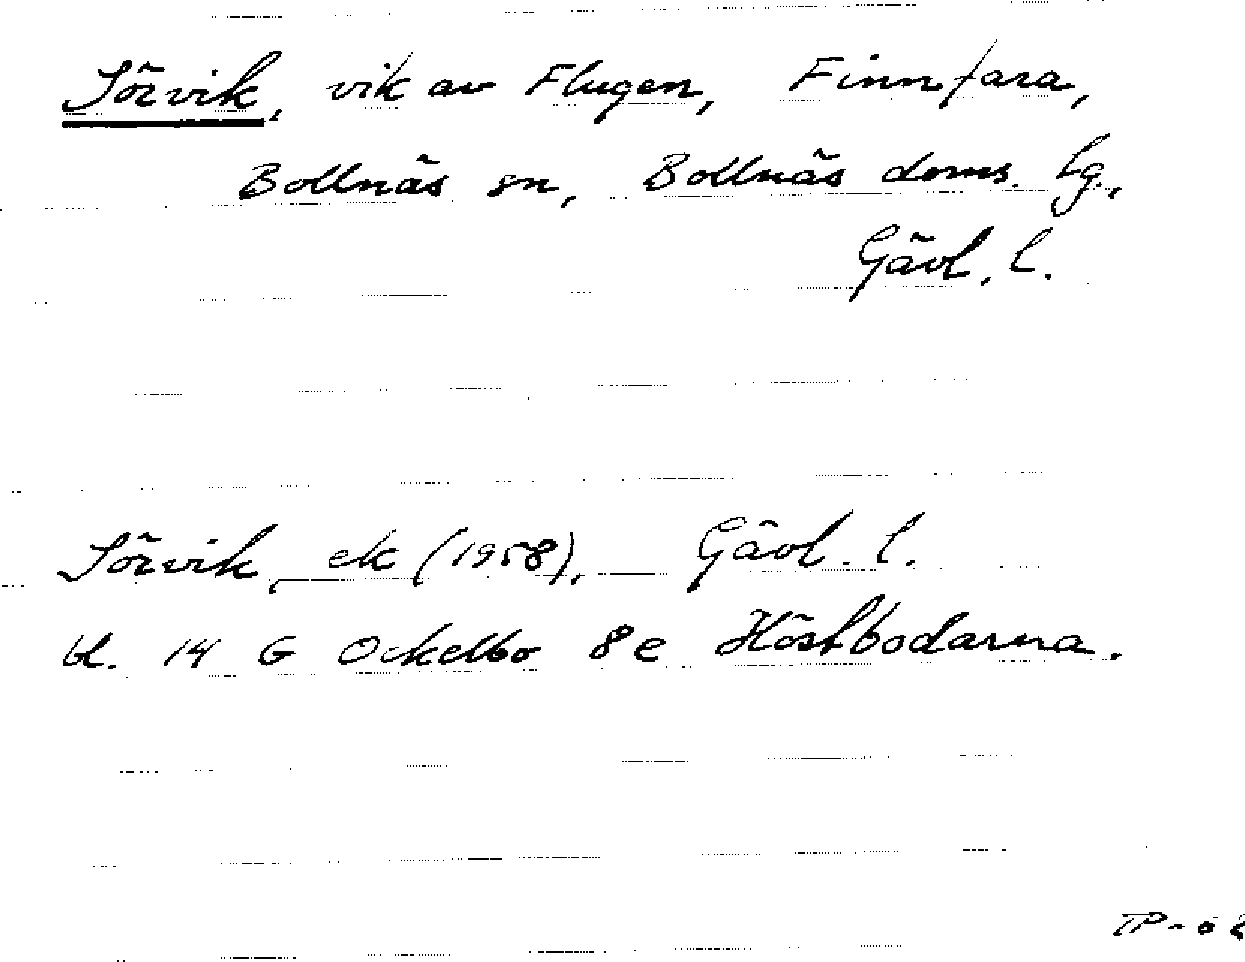 Sörvik, vik av Flugen, Finnfara,
Bollnäs sn, Bollnäs doms. lg.,
Gävl. l.
Sörvik, ek (1958), Gävl. l.
bl. 14 G Ockelbo 8e Höstbodarna.
TP-62